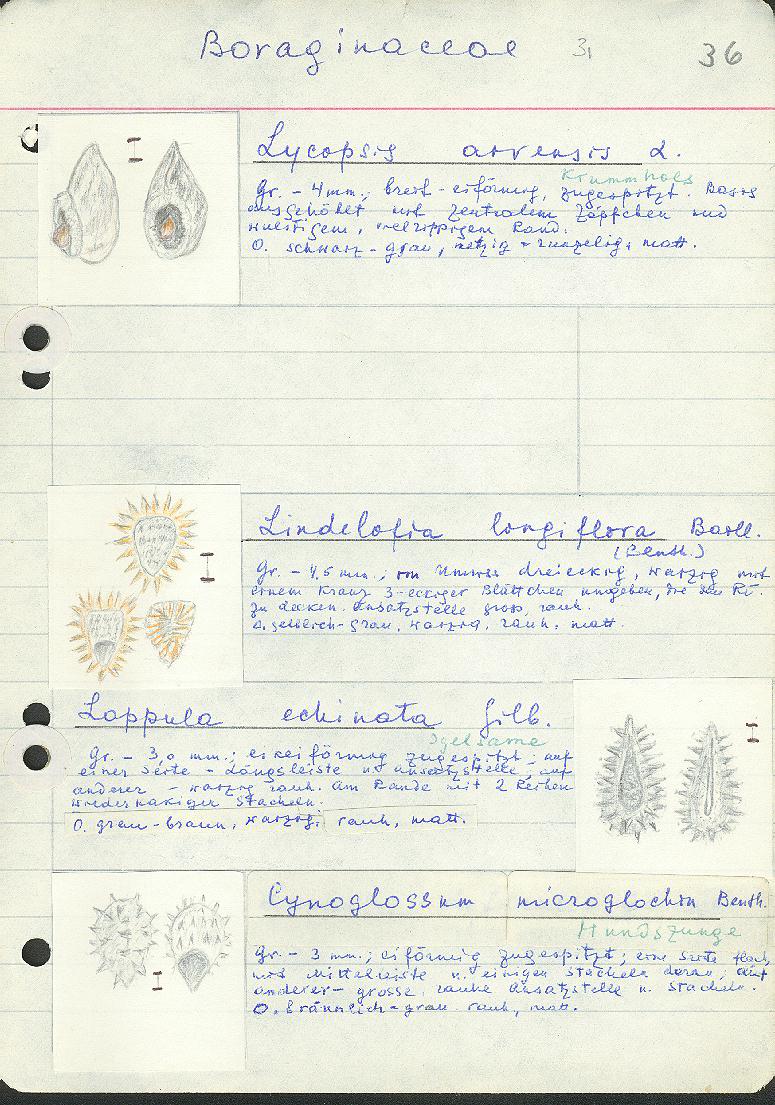 Boraginaceae 31 36
Lycopsis arvensis L.
Krummhals
Gr. - 4 mm.; breit-eiförmig, zugespitzt. Basis
ausgehöhlt mit zentralem Zäpfchen und
wulstigem, vielrippigem Rand.
O. schwarz-grau, netzig-runzelig, matt.
Lindelofia longiflora Baill.
(Benth.)
Gr. - 4,5 mm.; im Umriss dreieckig, warzig mit
einem Kranz 3-eckiger Blättchen umgeben, die den Rü.
zu decken. Ansatzstelle gross, rauh.
O. gelblich-grau, warzig, rauh, matt.
Lappula echinata Gilb.
Igelsame
Gr. - 3,0 mm.; eiförmig zugespitzt; auf
einer Seite - Längsleiste u. Ansatzstelle, auf
anderer - warzig rauh. Am Rande mit 2 Reihen
wiederhakiger Stacheln.
O. grau-braun, warzig, rauh, matt.
Cynoglossum microglochin Benth.
Hundszunge
Gr. - 3 mm.; eiförmig zugespitzt; eine Seite flach,
mit Mittelleiste u. einigen Stacheln daran; auf
anderer - grosse, rauhe Ansatzstelle u. Stacheln.
O. bräunlich-grau, rauh, matt.